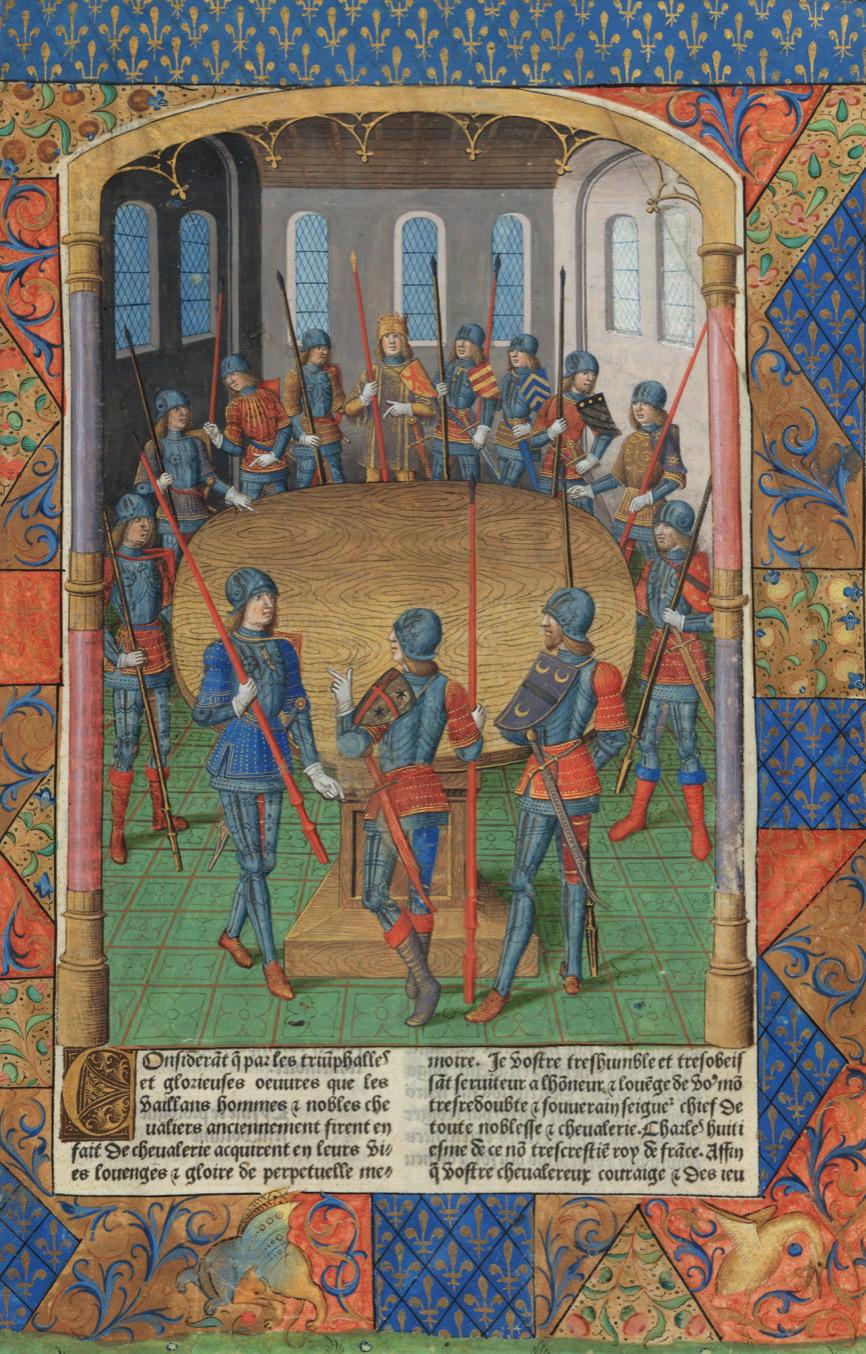 Onsiderãt q̃ par les triũphalles
et glorieuses oeuures que les
vaillans hommes ⁊ nobles che
ualiers anciennement firent en
fait de cheualerie acquirent en leurs vi⸗
es louenges ⁊ gloire de perpetuelle me⸗
moire. Je vostre treshumble et tresobeis
sãt seruiteur a lhõneur ⁊ louẽge de vo᷒ mõ
tresredoubte ⁊ souuerain seigneᷣ chief de
toute noblesse ⁊ cheualerie. Charles huiti
esme de ce nõ trescrestiẽ roy de frãce. Affin
q̃ vostre cheualereux couraige ⁊ des ieu